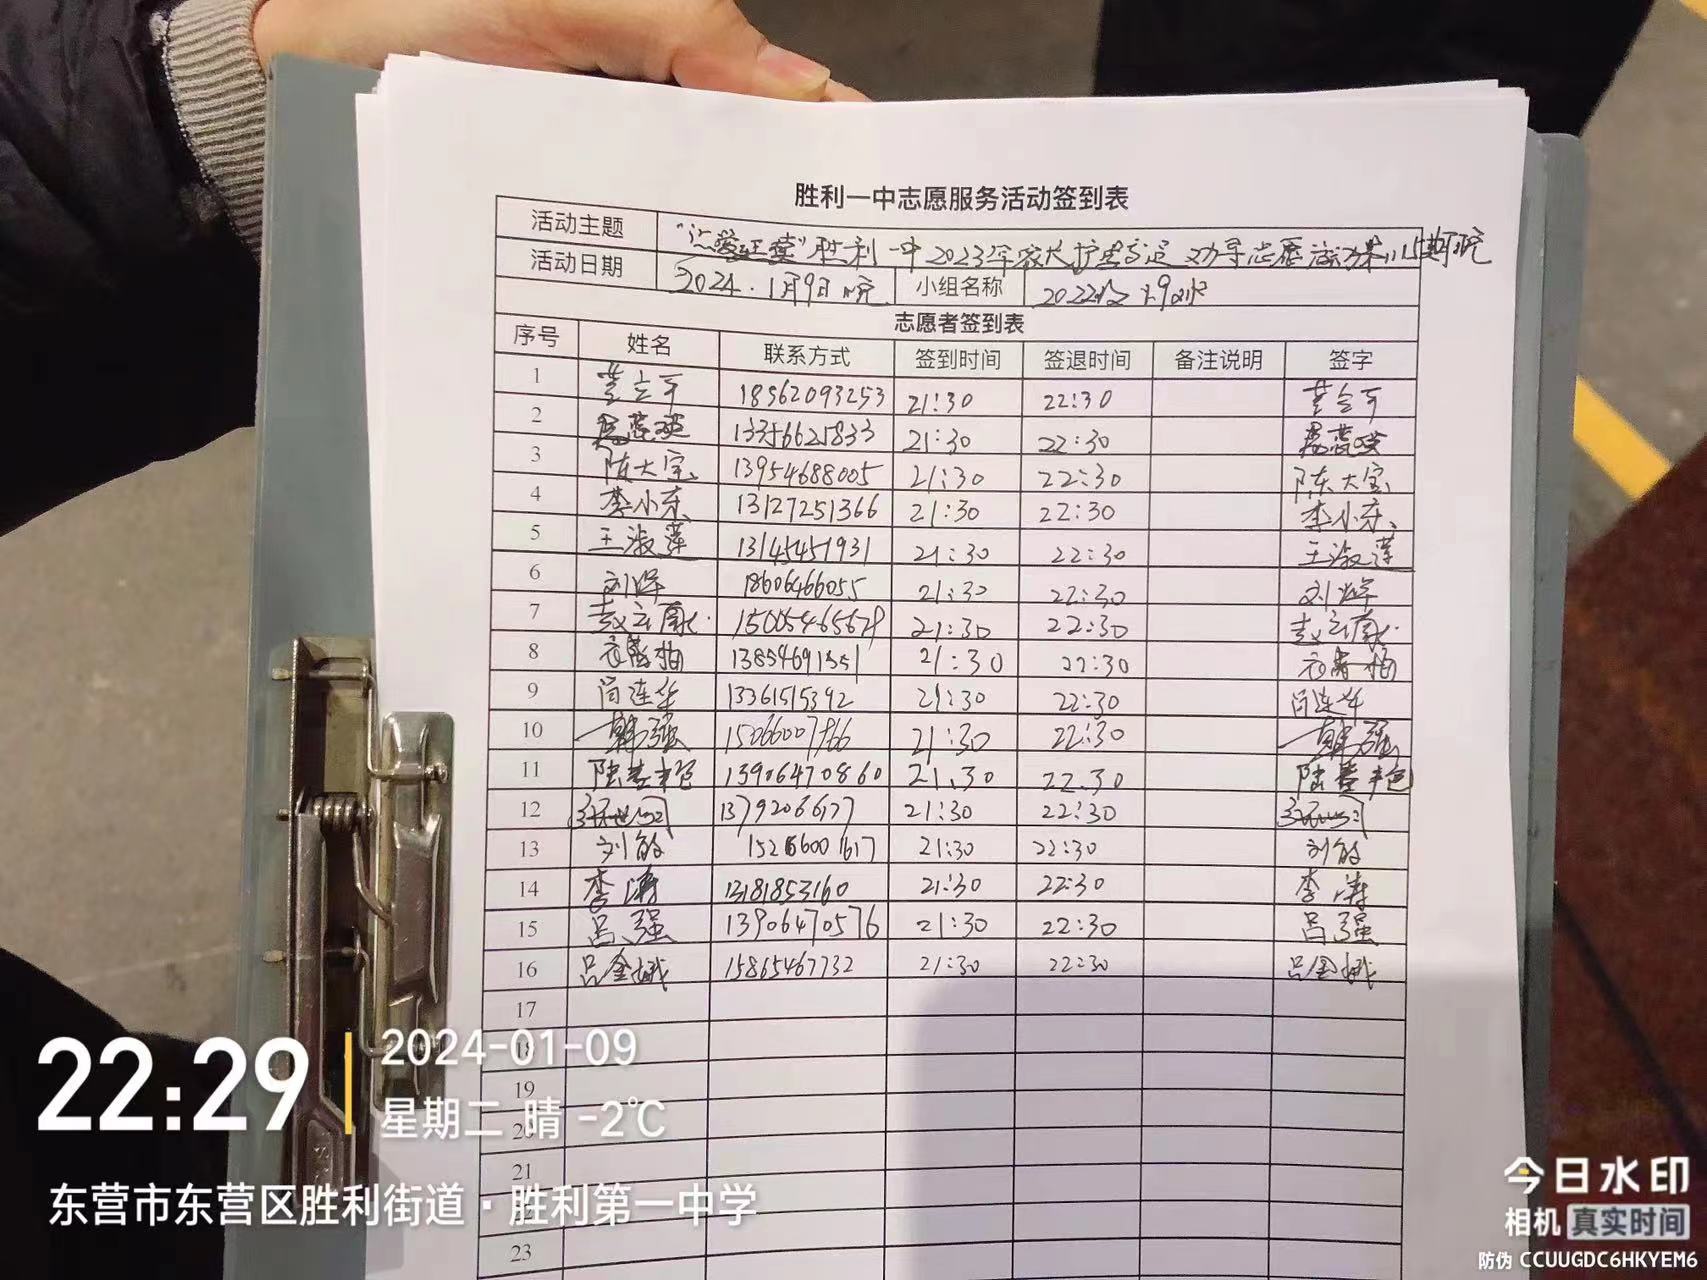 胜利一中志愿服务活动签到表
活动主题 胜利一中2023年家长护安 劝导志愿
活动日期 2024.1月9日 小组名称 2022级
志愿者签到表
序号 姓名 联系方式 签到时间 签退时间 备注说明 签字
1 18562093253 21:30 22:30
2 13356621833 21:30 22:30
3 陈大宝 13954688005 21:30 22:30 陈大宝
4 李小东 13127251366 21:30 22:30 李小东
5 王淑莲 21:30 22:30 王淑莲
6 刘辉 18606466055 21:30 22:30 刘辉
7 15005465679 21:30 22:30
8 13854691551 21:30 22:30
9 13361515392 21:30 22:30
10 韩强 15066007866 21:30 22:30 韩强
11 13906470860 21:30 22:30
12 21:30 22:30
13 刘敏 21:30 22:30 刘敏
14 李涛 13181853160 21:30 22:30 李涛
15 吕强 13906470576 21:30 22:30 吕强
16 吕金娥 15865467732 21:30 22:30 吕金娥
17
18
19
20
21
22
23
22:29
2024-01-09
星期二 晴 -2℃
东营市东营区胜利街道·胜利第一中学
今日水印
相机 真实时间
防伪 CCUUGDC6HKYEM6